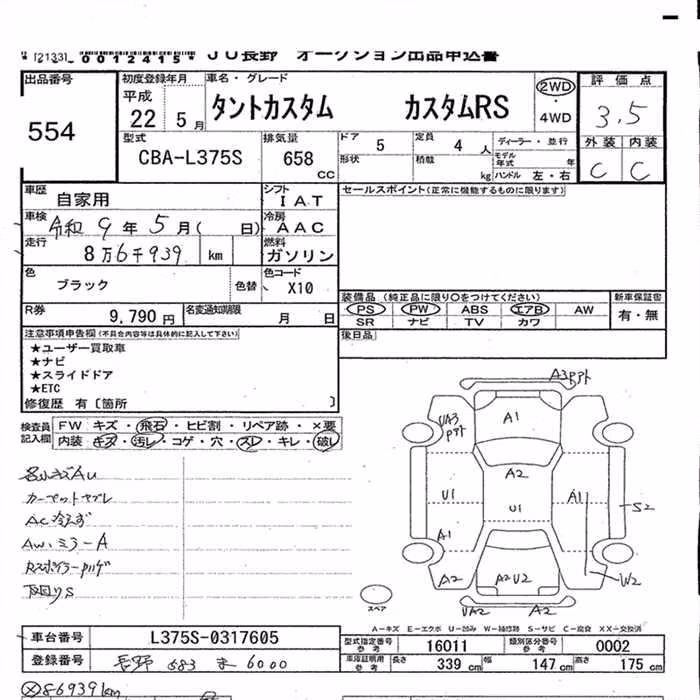 [2133] 0012415* JU長野 オークション出品申込書
出品番号 554
初度登録年月 平成 22 5月
車名・グレード タントカスタム カスタムRS
2WD ・ 4WD
評価点 3.5
外装 内装
C C
型式 CBA-L375S
排気量 658 CC
ドア 5 定員 4 人 ディーラー・並行
形状 積載 kg モデル年式 年
ハンドル 左・右
車歴 自家用
シフト IAT
セールスポイント(正常に機能するものに限ります)
車検 令和 9年 5月( 日)
冷房 AAC
走行 8万6千939 km
燃料 ガソリン
色 ブラック 色替
色コード X10
装備品(純正品に限り○をつけてください) 新車保証書
PS PW ABS エアB AW 有・無
SR ナビ TV カワ
R券 9,790円 名変通知期限 月 日
後日品
注意事項申告欄(不具合内容等は具体的に記入して下さい)
★ユーザー買取車
★ナビ
★スライドドア
★ETC
修復歴 有〔箇所 〕
検査員記入欄
FW キズ・飛石・ヒビ割・リペア跡・×要
内装 キズ・汚レ・コゲ・穴・スレ・キレ・破レ
A3
A1
UA3
A2
U1
U1
A1
A1
S2
W2
A2
A2U2
UA2
A2
カーペットヤブレ
AC冷えず
AW、ミラーA
スペア
A-キズ E-エクボ U-凹み W-補修跡 S-サビ C-腐食 XX-交換済
車台番号 L375S-0317605
型式指定番号 参考 16011 類別区分番号 参考 0002
登録番号 長野 583 ま 6000
車庫証明用 参考 長さ 339 cm 幅 147 cm 高さ 175 cm
Ⓧ86939km